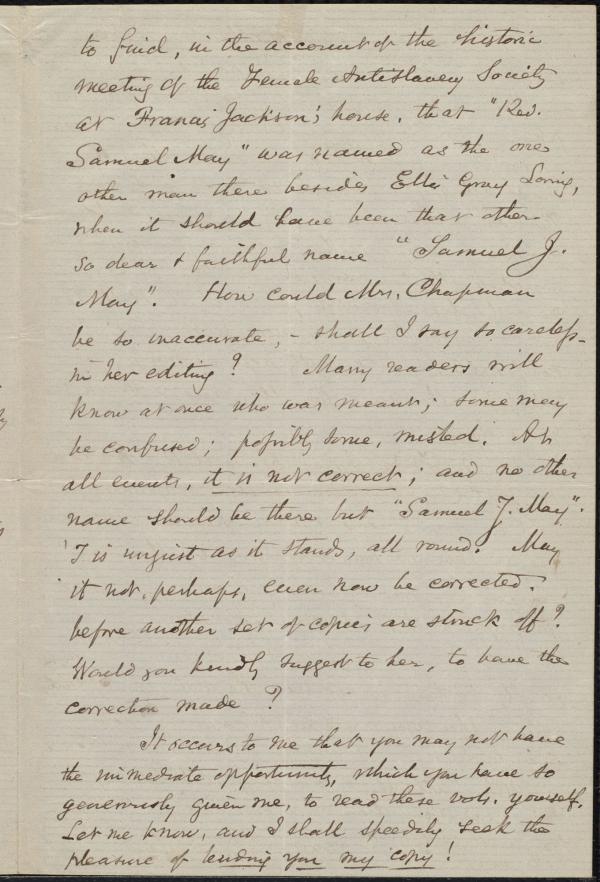 to find, in the account of the historic
meeting of the Female Antislavery Society
at Francis Jackson's house, that "Rev.
Samuel May" was named as the one
other man there besides Ellis Gray Loring,
when it should have been that other
so dear & faithful name "Samuel J.
May". How could Mrs. Chapman
be so inaccurate, - shall I say so careless-
in her editing? Many readers will
know at once who was meant; some may
be confused; possibly some, misled. At
all events, it is not correct; and no other
name should be there but "Samuel J. May".
'T is unjust as it stands, all round. May
it not, perhaps, even now be corrected.
before another set of copies are struck off?
Would you kindly suggest to her, to have the
correction made?
It occurs to me that you may not have
the immediate opportunity, which you have so
generously given me, to read these vols. yourself.
Let me know, and I shall speedily seek the
pleasure of lending you my copy!